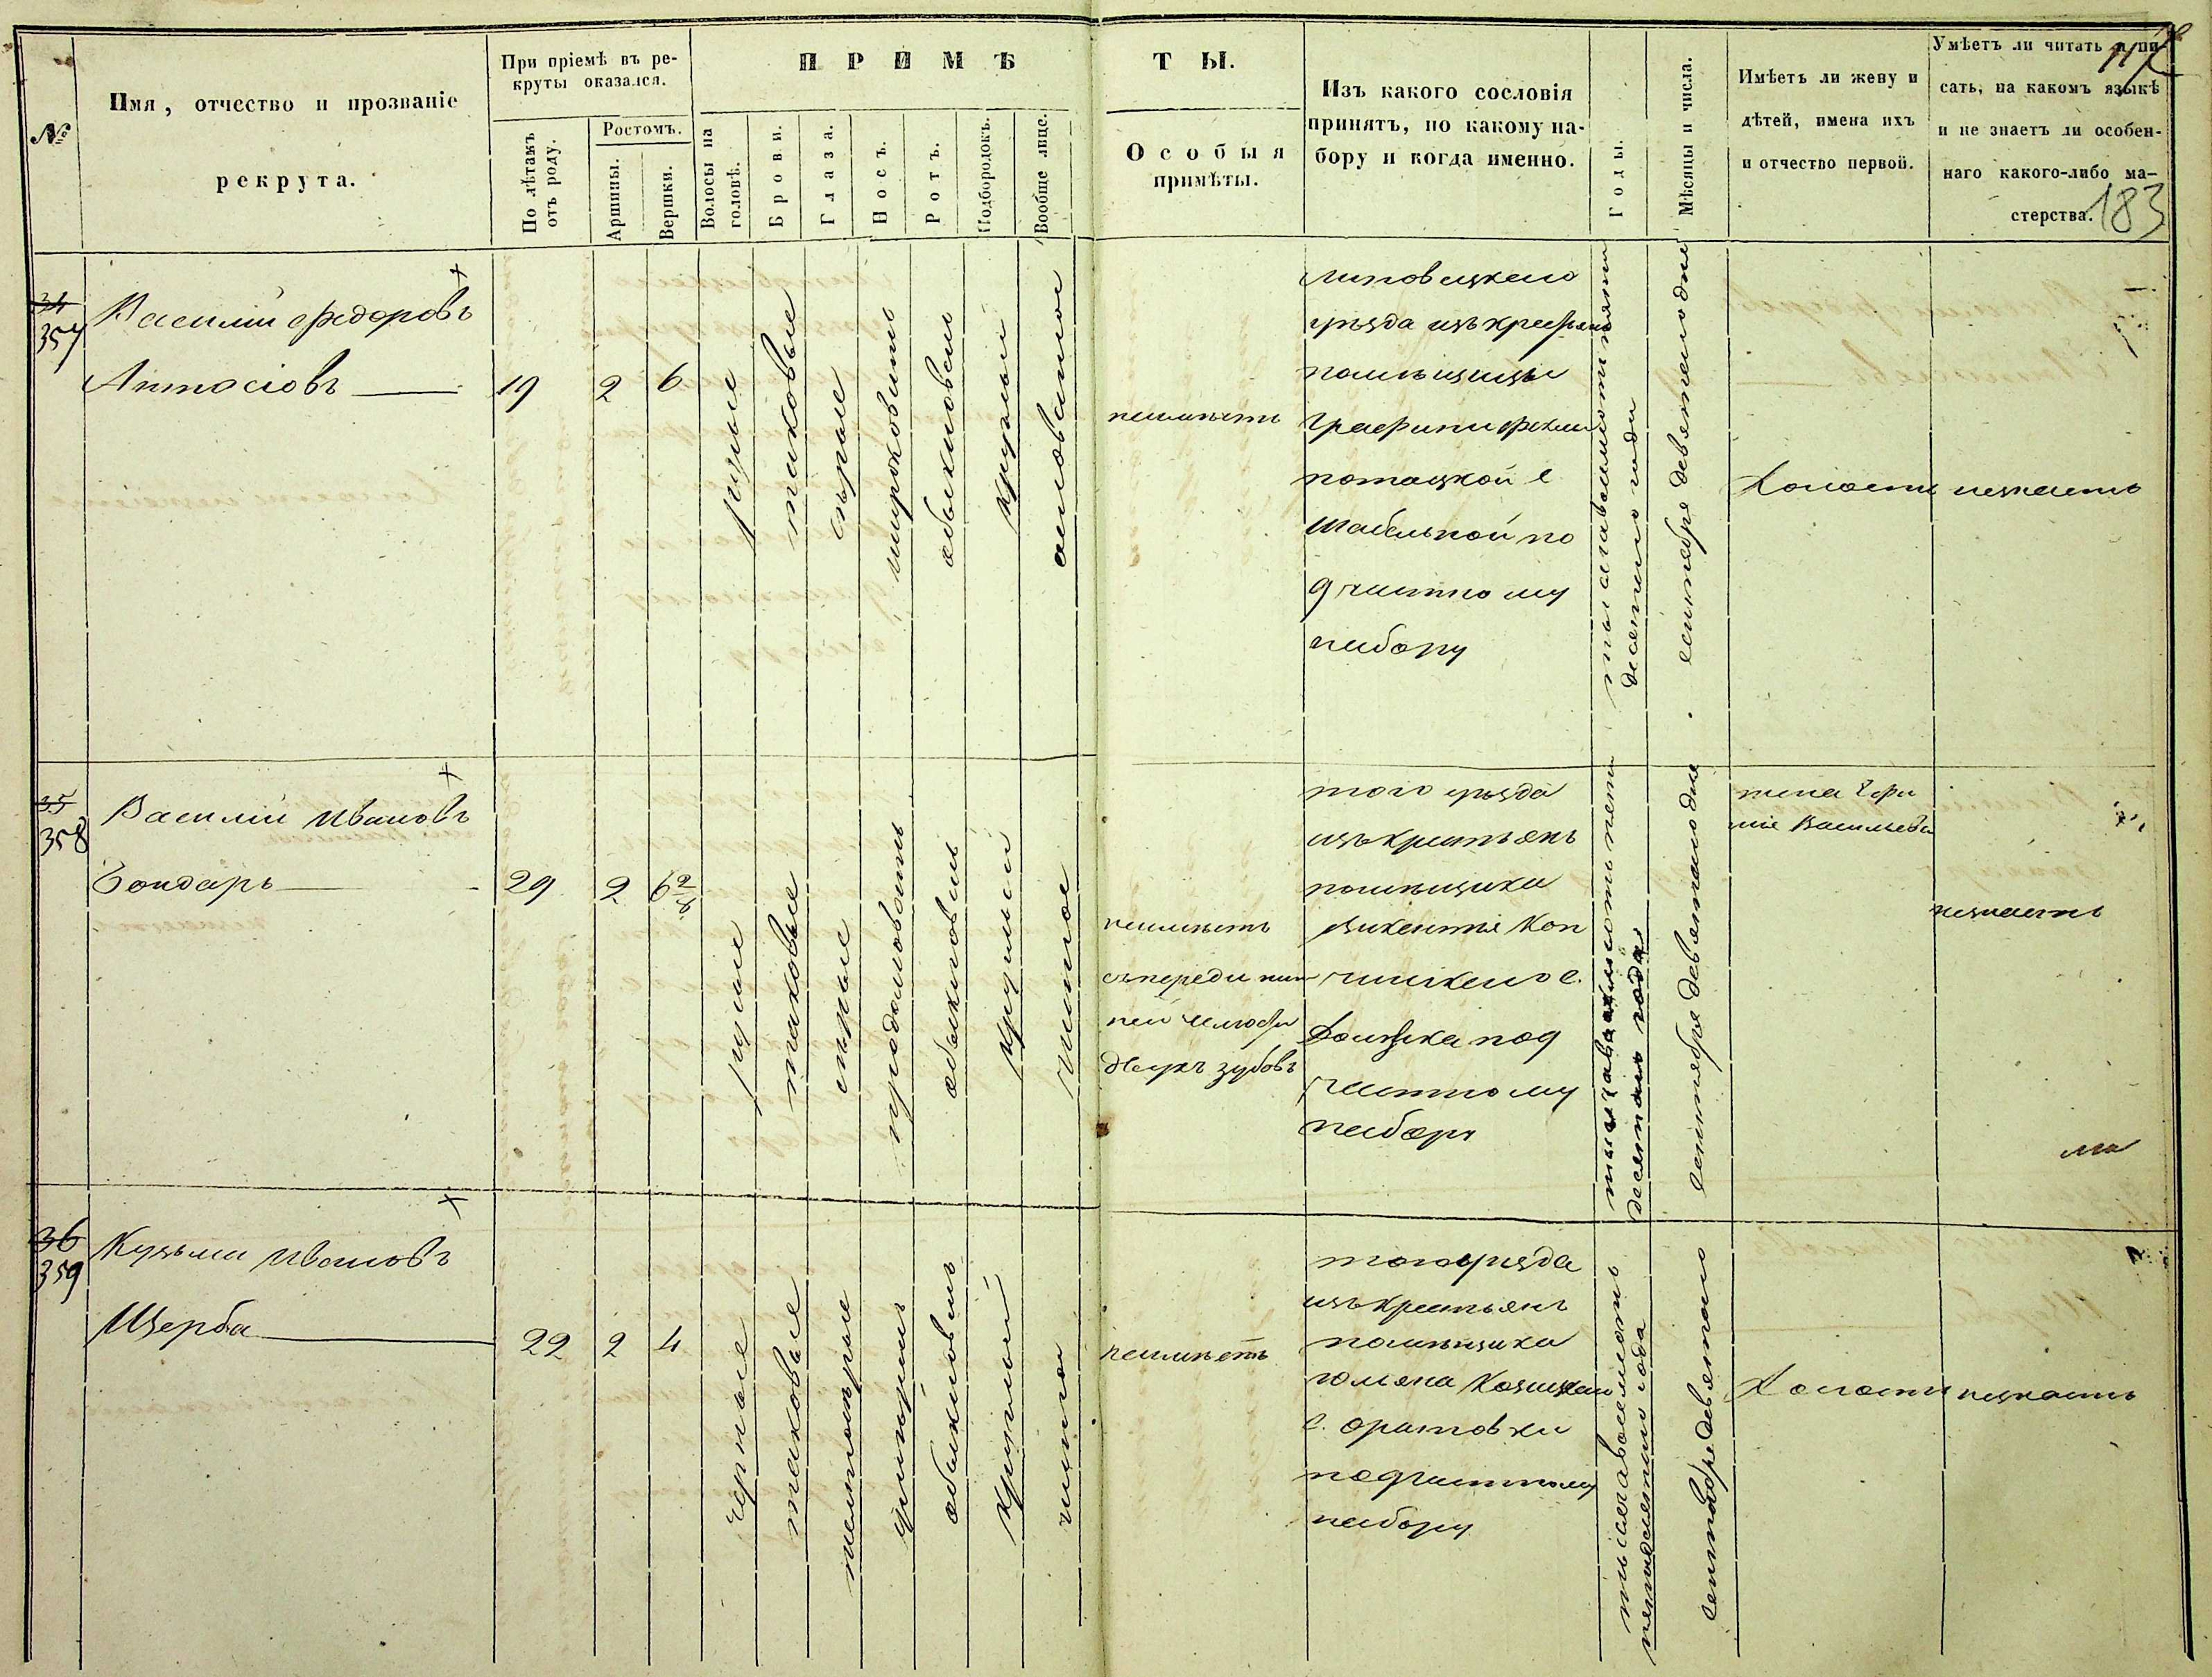 117
183
№
Имя, отчество и прозваніе
рекрута.
При пріемѣ въ ре-
круты оказался.
По лѣтамъ
отъ роду.
Ростомъ.
Аршины.
Вершки.
ПРИМѢ
ТЫ.
Волосы на
головѣ.
Брови.
Глаза.
Носъ.
Ротъ.
Подбородокъ.
Вообще лице.
Особыя
примѣты.
Изъ какого сословія
принятъ, по какому на-
бору и когда именно.
Годы.
Мѣсяцы и числа.
Имѣетъ ли жену и
дѣтей, имена ихъ
и отчество первой.
Умѣетъ ли читать и пи-
сать, на какомъ языкѣ
и не знаетъ ли особен-
наго какого-либо ма-
стерства.
34
357
Василій Федоровъ
Антосіовъ
19
2
6
русые
таковые
сѣрые
широковатъ
обыкновенъ
круглый
неимѣетъ
Липовецкаго
уѣзда изъ крестьянъ
помѣщицы
Графини
Потоцкой с
Шабельной по
д частному
набору
тысяча восемьсотъ пять
десятого года
сентября девятого дня
Холостъ
незнаетъ
35
358
Василій Ивановъ
Бондарь
29
2
6 2/8
русые
таковые
сѣрые
продолговатъ
обыкновенъ
круглый
чистое
неимѣетъ
съпереди ниж
ней челюсти
двухъ зубовъ
того уѣзда
изъ крестьянъ
помѣщика
Викентія
с.
под
частному
набору
тысяча восемьсотъ пять
десятого года
сентября девятого дня
жена Ефи
мія Васильева
незнаетъ
36
359
Кузьма Ивановъ
Щерба
22
2
4
черные
таковые
обыкновенъ
круглый
чистое
неимѣетъ
того уѣзда
изъ крестьянъ
помѣщика
с. Оратовки
под частному
набору
тысяча восемьсотъ
пятьдесятого года
сентября девятого
Холостъ
незнаетъ